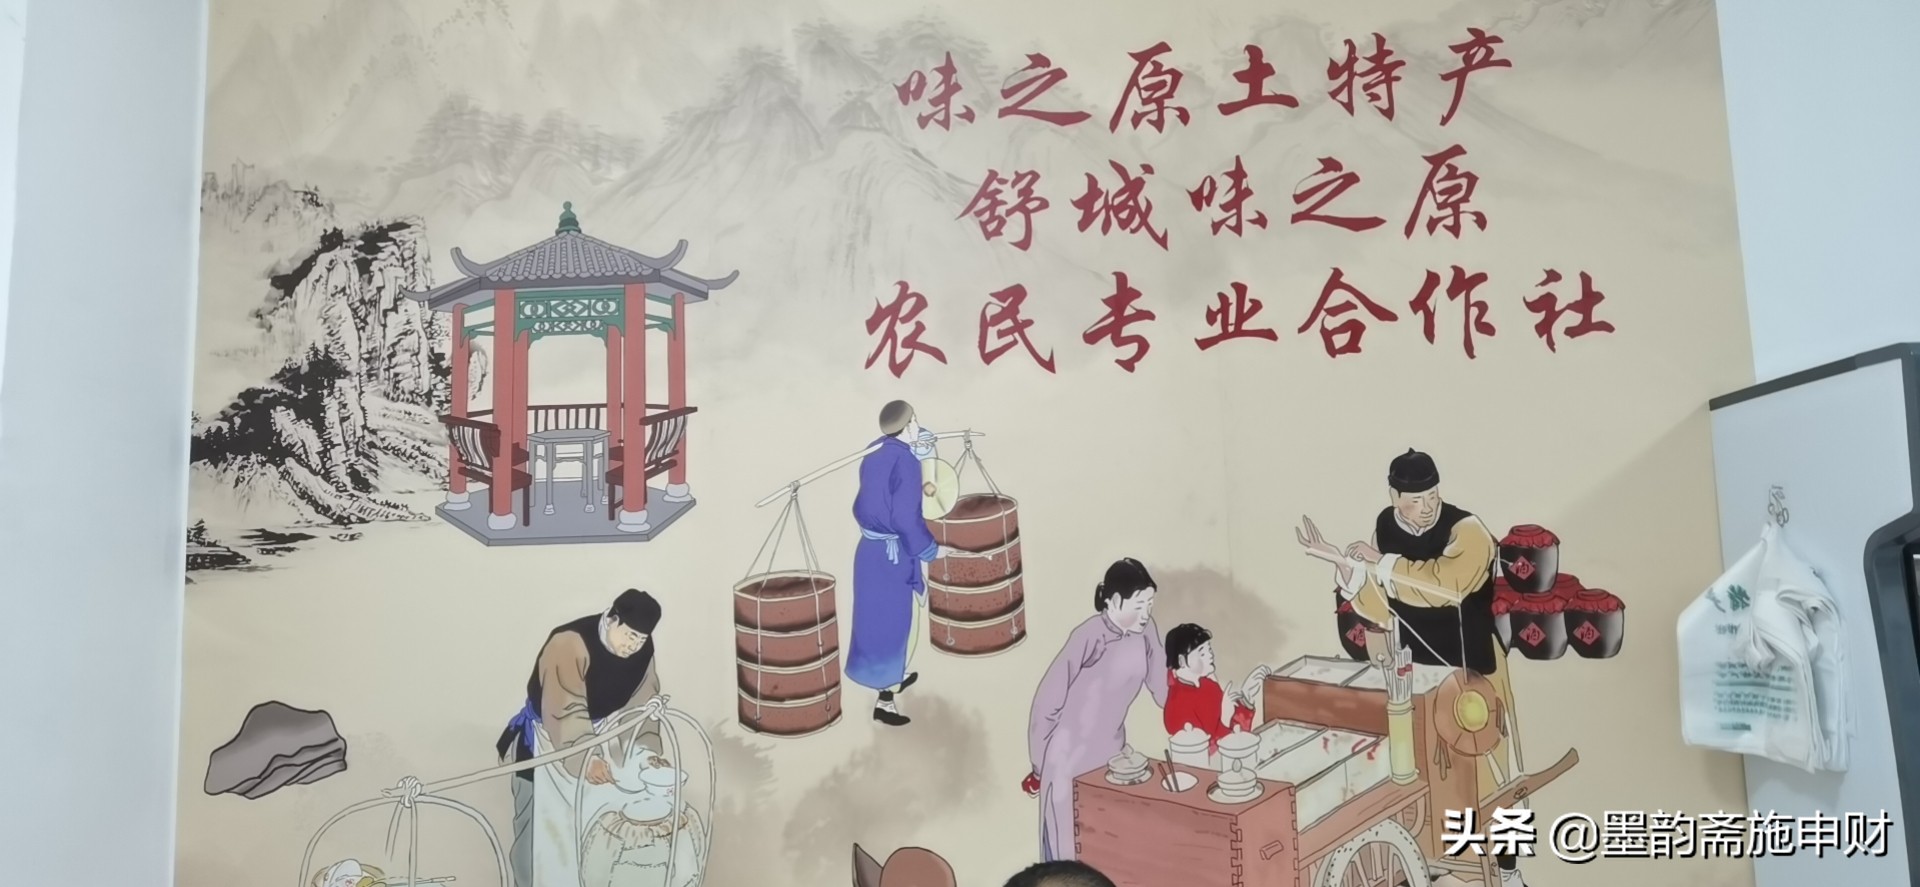 味之原土特产
舒城味之原
农民专业合作社
酒
酒
酒
酒
头条 @墨韵斋施申财